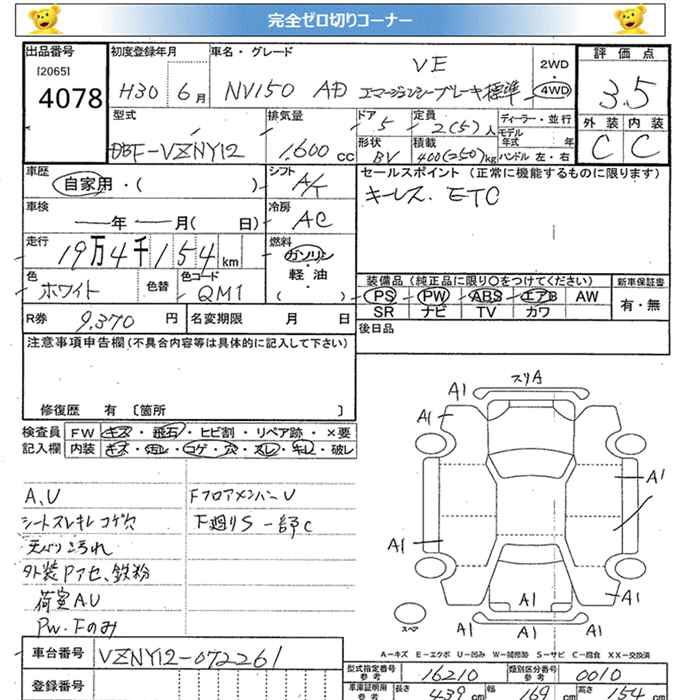 完全ゼロ切りコーナー
出品番号
[2065]
4078
初度登録年月
H30 6月
車名・グレード
VE
NV150 AD エマージェンシーブレーキ標準
2WD
・
4WD
評価点
3.5
型式
DBF-VZNY12
排気量
1.600 cc
ドア
5
定員
2(5)人
ディーラー・並行
モデル
年式 年
形状
BV
積載
400(250)kg
ハンドル 左・右
外装 内装
C C
車歴
自家用・( )
シフト
A/T
セールスポイント (正常に機能するものに限ります)
キーレス. ETC
車検
年 月( 日)
冷房
AC
走行
19万4千154 km
燃料
ガソリン
・
軽・油
( )
色
ホワイト
色替
色コード
QM1
装備品 (純正品に限り○をつけてください)
PS PW ABS エアB AW
SR ナビ TV カワ
新車保証書
有・無
R券 9,370 円
名変期限 月 日
後日品
注意事項申告欄(不具合内容等は具体的に記入して下さい)
修復歴 有 〔箇所 〕
検査員 FW キズ・飛石・ヒビ割・リペア跡・×要
記入欄 内装 キズ・汚レ・コゲ・穴・スレ・キレ・破レ
A、U
シートスレキレコゲ穴
天バリ汚れ
外装Pアセ、鉄粉
荷室A.U
Pw.Fのみ
FフロアメンバーU
下廻りS一部C
スリA
A1
A1
A1
A1
A1
A1
A1
A1
A1
スペア
A-キズ E-エクボ U-凹み W-補修跡 S-サビ C-腐食 XX-交換済
車台番号 VZNY12-072261
登録番号
型式指定番号
参考
16210
類別区分番号
参考
0010
車庫証明用
参考
長さ 439 cm 幅 169 cm 高さ 154 cm